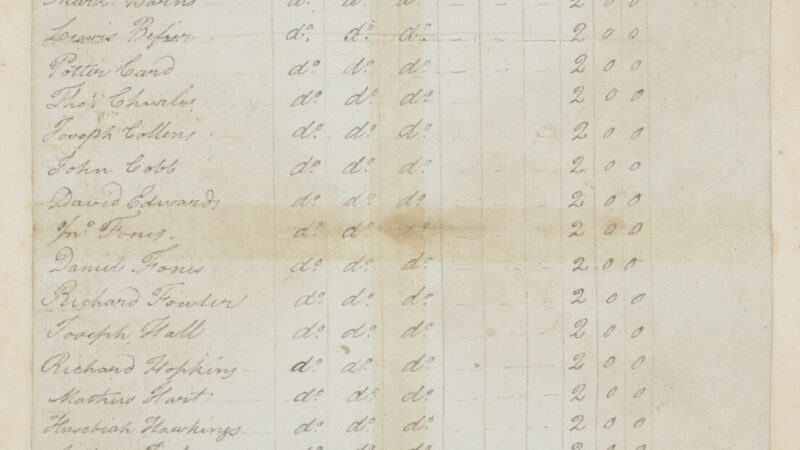 Mark Barns d.o d.o d.o 2 0 0
Loewis Besser d.o d.o d.o 2 0 0
Potter Card d.o d.o d.o 2 0 0
Tho.s Charles d.o d.o d.o 2 0 0
Joseph Collens d.o d.o d.o 2 0 0
John Cobb d.o d.o d.o 2 0 0
David Edwards d.o d.o d.o 2 0 0
Jn.o Fones d.o d.o d.o 2 0 0
Daniel Fones d.o d.o d.o 2 0 0
Richard Fowler d.o d.o d.o 2 0 0
Joseph Hall d.o d.o d.o 2 0 0
Richard Hopkins d.o d.o d.o 2 0 0
Mathew Hart d.o d.o d.o 2 0 0
Hawkings d.o d.o d.o 2 0 0